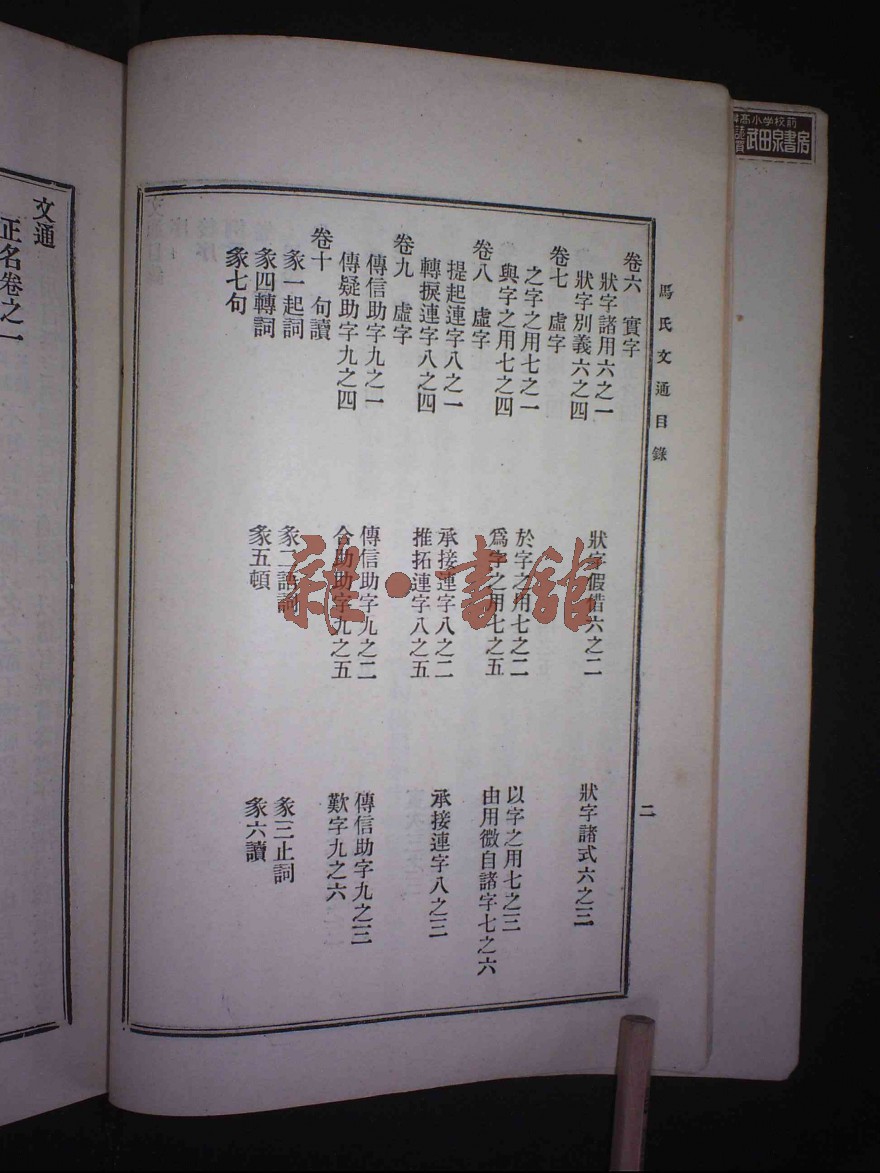 馬氏文通目錄
二
卷六 實字
狀字諸用六之一 狀字假借六之二 狀字諸式六之三
狀字別義六之四
卷七 虛字
之字之用七之一 於字之用七之二 以字之用七之三
與字之用七之四 爲字之用七之五 由用微自諸字七之六
卷八 虛字
提起連字八之一 承接連字八之二 承接連字八之三
轉捩連字八之四 推拓連字八之五
卷九 虛字
傳信助字九之一 傳信助字九之二 傳信助字九之三
傳疑助字九之四 合助助字九之五 歎字九之六
卷十 句讀
彖一起詞 彖二語詞 彖三止詞
彖四轉詞
彖七句 彖五頓 彖六讀
文通
正名卷之一
高小学校前
武田泉書房
雜·書館